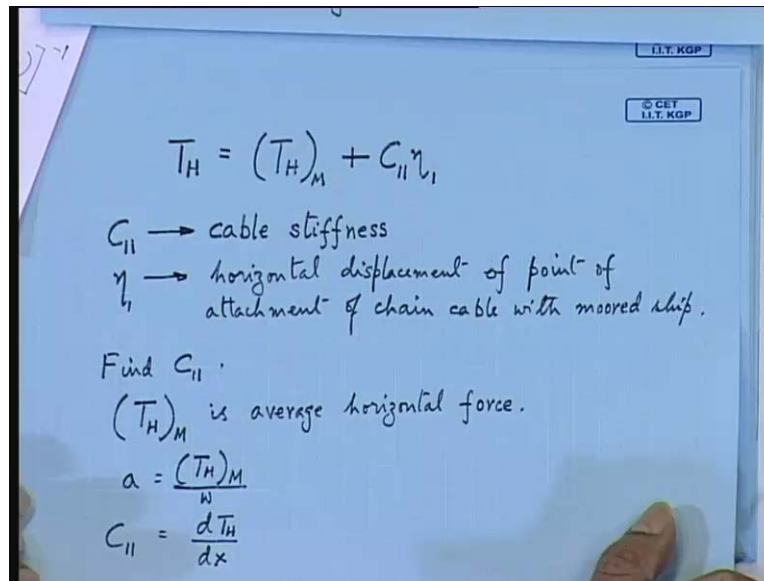 I.I.T. KGP
© CET
I.I.T. KGP
T_H = (T_H)_M + C_11 η_1
C_11 → cable stiffness
η_1 → horizontal displacement of point of
attachment of chain cable with moored ship.
Find C_11.
(T_H)_M is average horizontal force.
a = (T_H)_M / w
C_11 = dT_H / dx